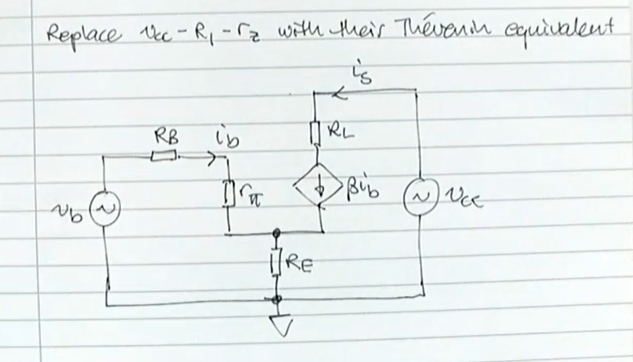 Replace vcc - R1 - rz with their Thévenin equivalent
is
RL
RB
ib
rπ
βib
vcc
vb
RE